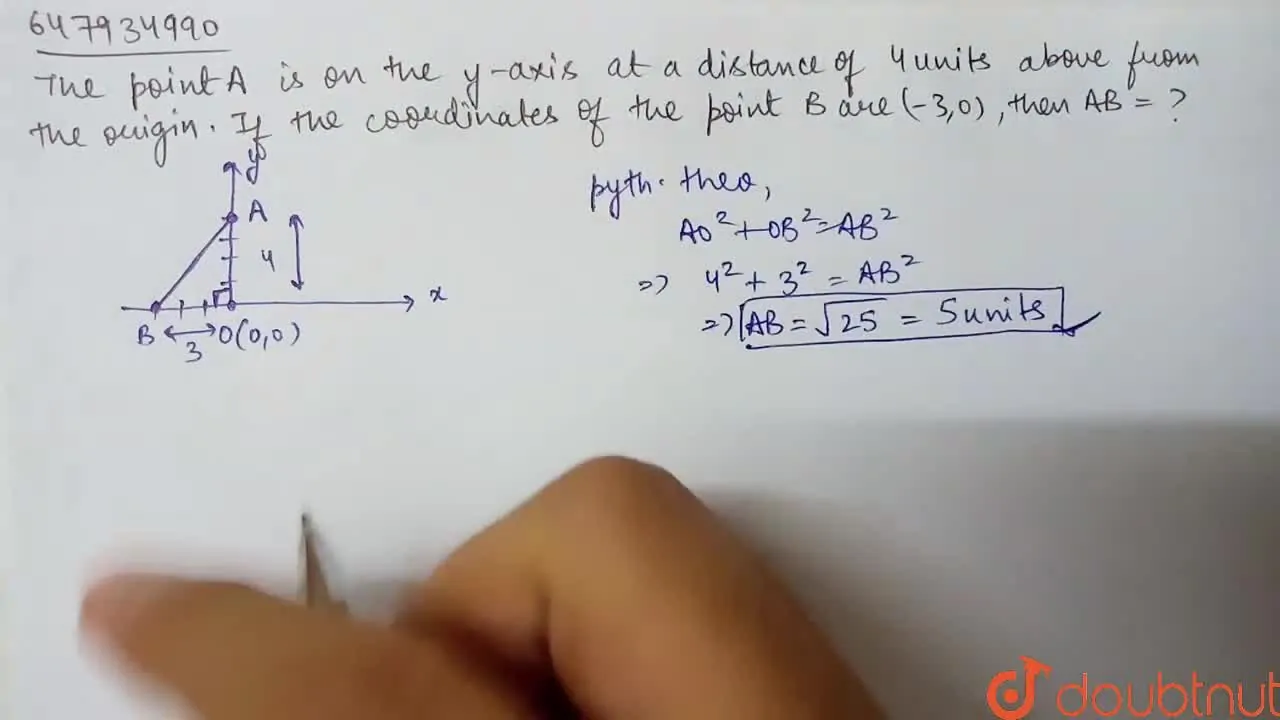 647934990
The point A is on the y-axis at a distance of 4 units above from
the origin. If the coordinates of the point B are (-3,0), then AB = ?
y
A
4
x
B
O(0,0)
3
pyth. theo,
AO² + OB² = AB²
=> 4² + 3² = AB²
=> AB = √25 = 5 units
doubtnut